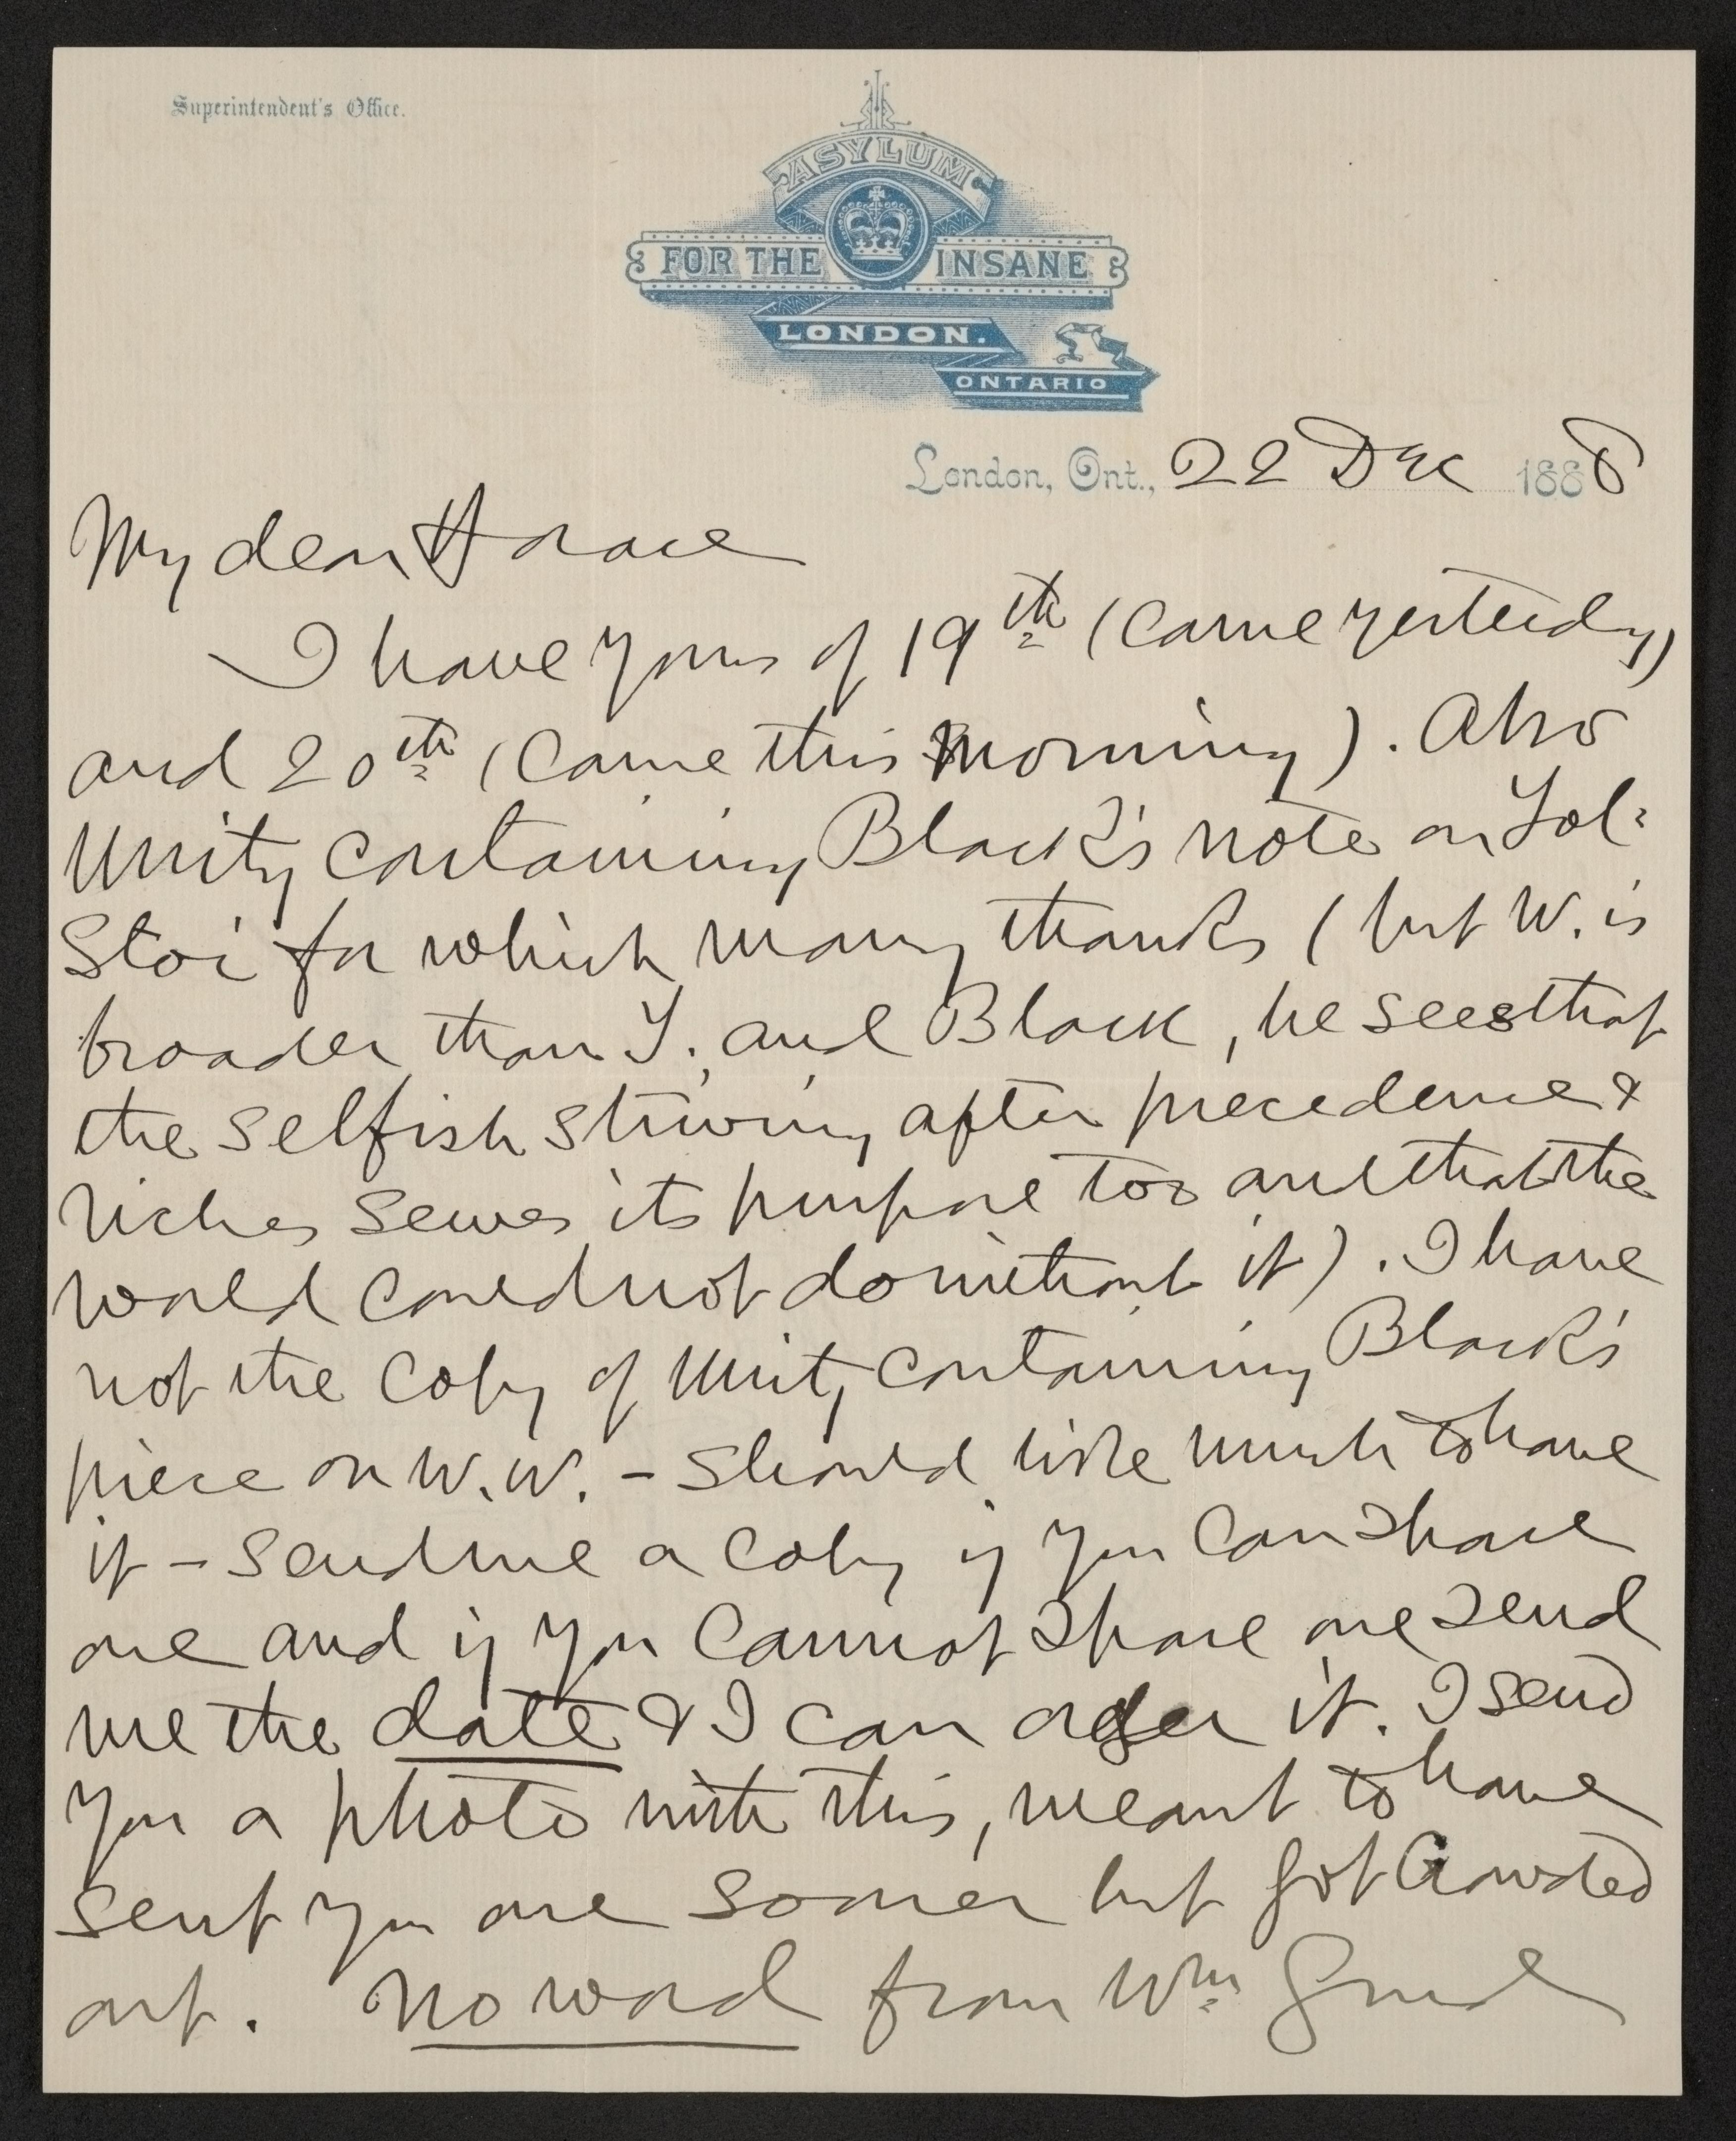 Superintendent's Office.
ASYLUM
FOR THE INSANE
LONDON.
ONTARIO
London, Ont., 22 Dec 1888
My dear Horace
I have yours of 19th (came yesterday)
and 20th (came this morning). Also
Unity containing Black's note on Tol-
stoi for which many thanks (but W. is
broader than T. and Black, he sees that
the selfish striving after precedence &
riches serves its purpose too and that the
world could not do without it). I have
not the copy of Unity containing Black's
piece on W.W. – should like much to have
it – send me a copy if you can spare
one and if you cannot spare one send
me the date & I can order it. I send
you a photo with this, meant to have
sent you one sooner but got crowded
out. No word from Wm Gurd